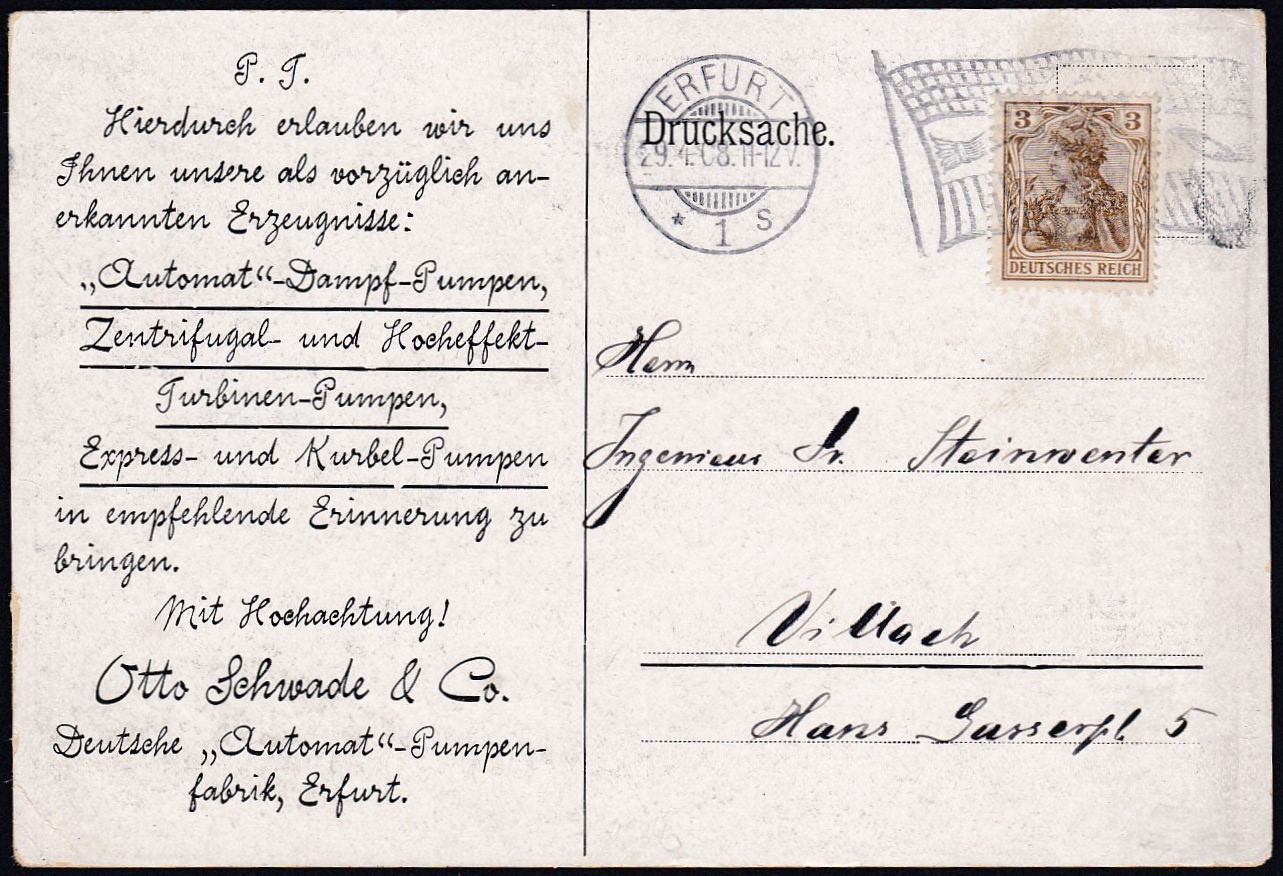 P. T.
Hierdurch erlauben wir uns
Ihnen unsere als vorzüglich an-
erkannten Erzeugnisse:
„Automat“-Dampf-Pumpen,
Zentrifugal- und Hocheffekt-
Turbinen-Pumpen,
Express- und Kurbel-Pumpen
in empfehlende Erinnerung zu
bringen.
Mit Hochachtung!
Otto Schwade & Co.
Deutsche „Automat“-Pumpen-
fabrik, Erfurt.
ERFURT
Drucksache.
29.4.08.11-12V.
* 1 s
3 3
DEUTSCHES REICH
Herrn
Ingenieur Steinwenter
Villach
Hans Gasserpl. 5